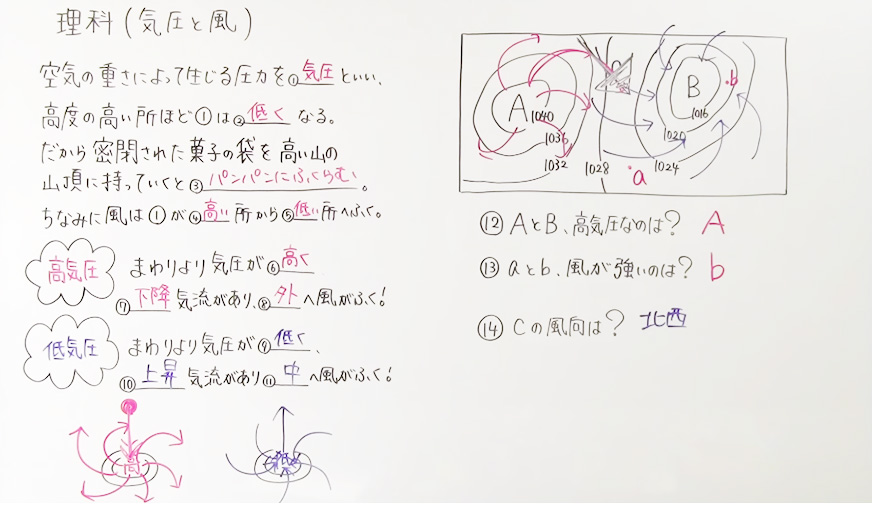 理科(気圧と風)
空気の重さによって生じる圧力を①気圧といい、
高度の高い所ほど①は②低くなる。
だから密閉された菓子の袋を高い山の
山頂に持っていくと③パンパンにふくらむ。
ちなみに風は①が④高い所から⑤低い所へふく。
高気圧
まわりより気圧が⑥高く
⑦下降気流があり、⑧外へ風がふく!
低気圧
まわりより気圧が⑨低く、
⑩上昇気流があり⑪中へ風がふく!
高
低
A
1040
1036
1032
1028
a
B
b
1016
1020
1024
⑫AとB、高気圧なのは? A
⑬aとb、風が強いのは? b
⑭Cの風向は? 北西